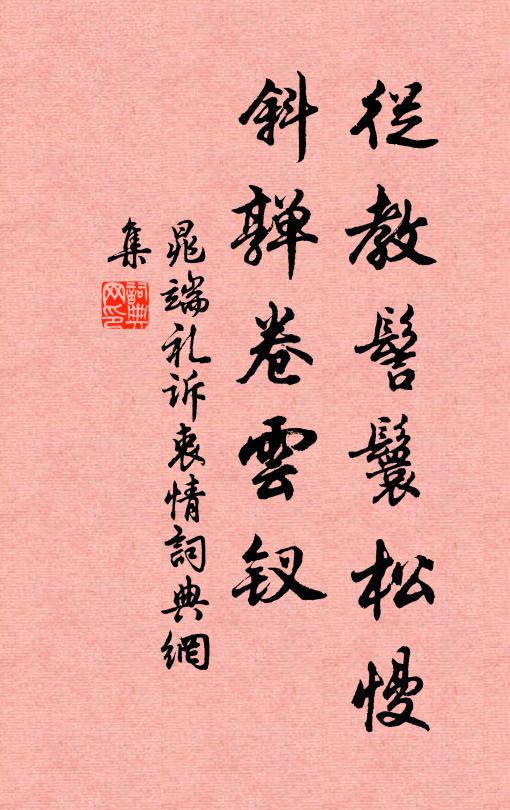 從教髻鬟松慢
斜嚲卷雲釵
晁端礼訴衷情詞典網
集
詞典网印